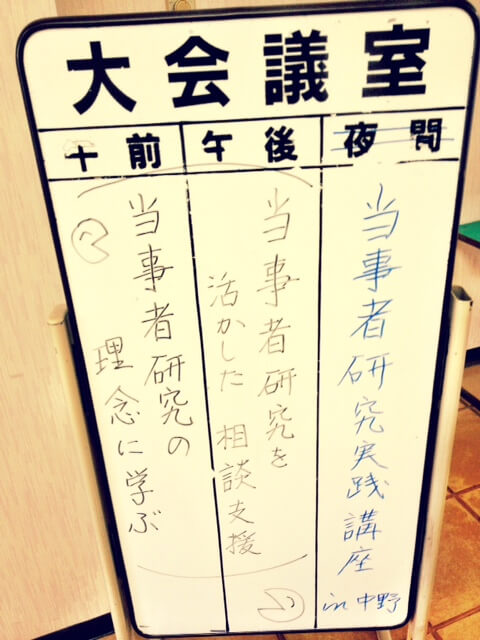 大会議室
午前 午後 夜間
当事者研究実践講座
in 中野
当事者研究を
活かした 相談支援
当事者研究の
理念に学ぶ